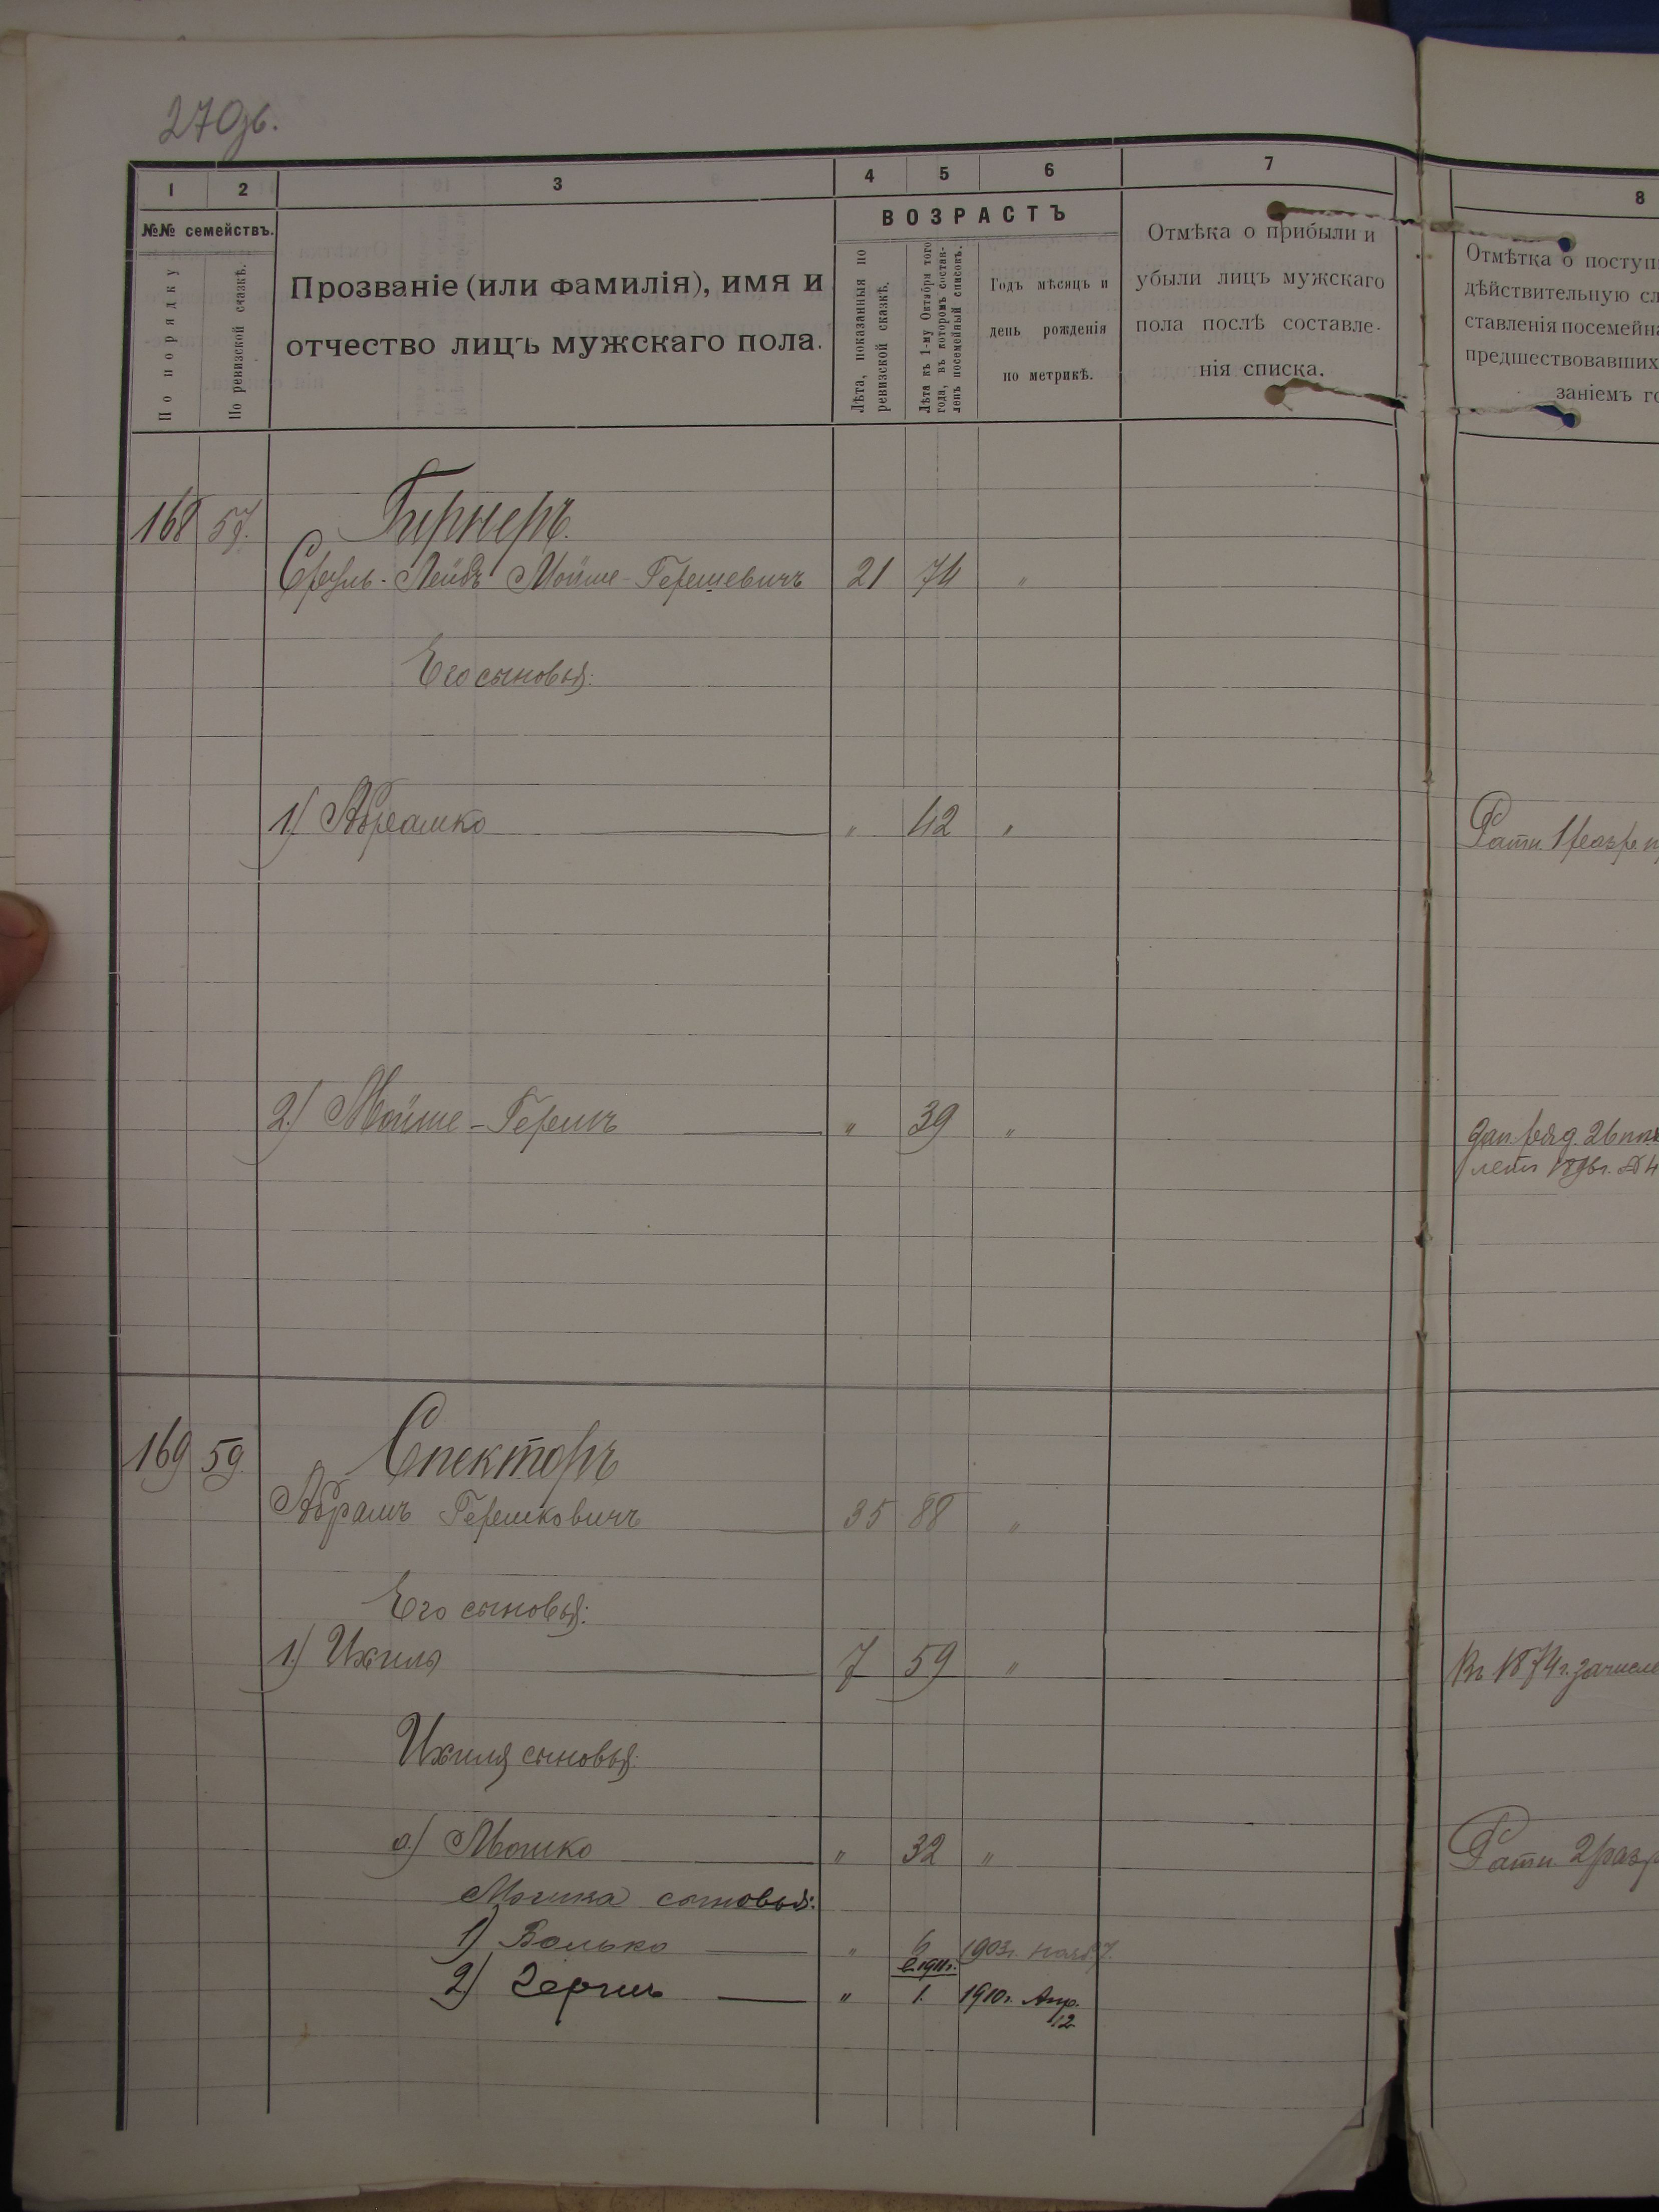 270зб.
1 2 3 4 5 6 7 8
№№ семействъ.
По порядку
По ревизской сказкѣ.
Прозваніе (или фамилія), имя и
отчество лицъ мужскаго пола.
ВОЗРАСТЪ
Лѣта, показанныя по
ревизской сказкѣ.
Лѣта къ 1-му Октября того
года, въ которомъ состав-
ленъ посемейный списокъ.
Годъ мѣсяцъ и
день рожденія
по метрикѣ.
Отмѣка о прибыли и
убыли лицъ мужскаго
пола послѣ составле-
нія списка.
Отмѣтка о поступ
дѣйствительную сл
ставленія посемейн
предшествовавших
заніемъ го
168 57. Гирнеръ.
Сруль-Лейбъ Мойше-Гершевичъ 21 74 "
Его сыновья:
1.) Абрамко " 42 "
Ратн. 1 разр.
2.) Мойше-Гершъ " 39 "
лѣтъ 1896г. №4
169 59 Спекторъ
Абрамъ Гершковичъ 35 88 "
Его сыновья:
1.) Ихиль 7 59 "
Въ 1874г. зачисле
Ихиля сыновья:
а.) Мошко " 32 "
Ратн. 2 разр
Мошка сыновья:
1) Волько " 6 1903г. нояб 7.
2) Гершъ " к. 1911г. 1. 1910г. Апр. 12.